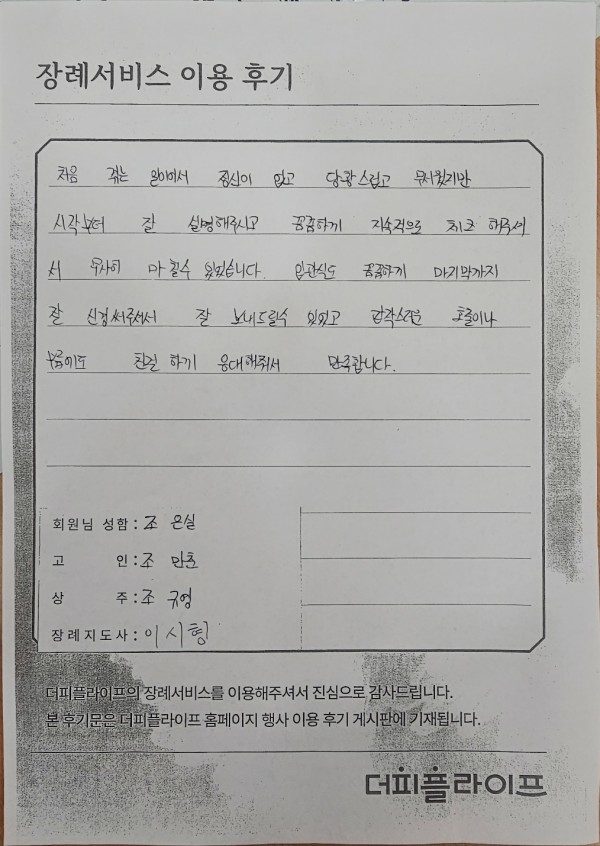 장례서비스 이용 후기
처음 겪는 일이어서 정신이 없고 당황스럽고 무서웠지만
시작부터 잘 설명해주시고 꼼꼼하게 지속적으로 체크 해주셔
서 무사히 마칠수 있었습니다. 입관식도 꼼꼼하게 마지막까지
잘 신경써주셔서 잘 보내드릴수 있었고 갑작스러운 호출이나
부름에도 친절 하게 응대해줘서 만족합니다.
회원님 성함 : 조 은실
고 인 : 조 만초
상 주 : 조 규영
장례지도사 : 이시형
더피플라이프의 장례서비스를 이용해주셔서 진심으로 감사드립니다.
본 후기문은 더피플라이프 홈페이지 행사 이용 후기 게시판에 기재됩니다.
더피플라이프